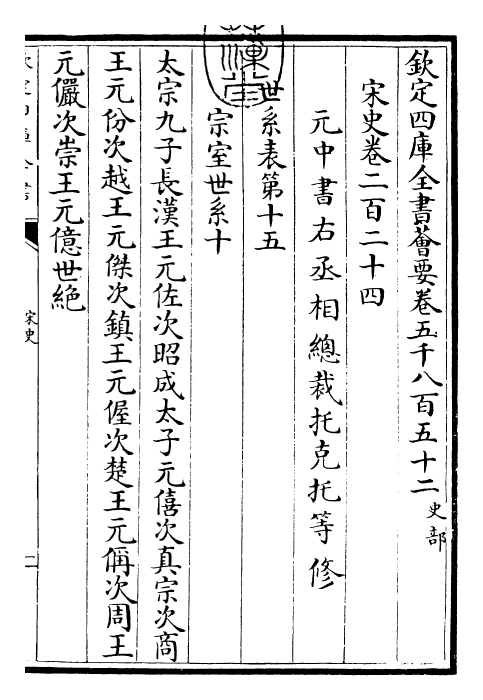 欽定四庫全書薈要卷五千八百五十二史部
宋史卷二百二十四
元中書右丞相總裁托克托等修
世系表第十五
宗室世系十
太宗九子長漢王元佐次昭成太子元僖次真宗次商
王元份次越王元傑次鎮王元偓次楚王元偁次周王
元儼次崇王元億世絶
宋史